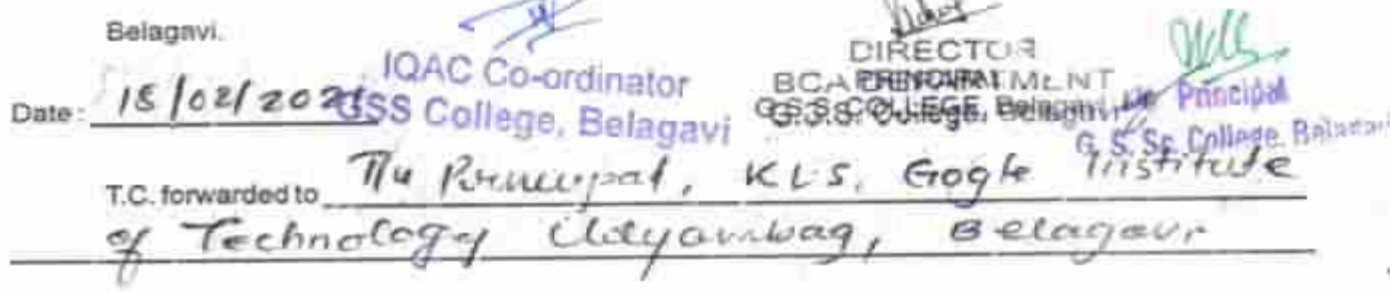 Belagavi.
IQAC Co-ordinator
GSS College, Belagavi
DIRECTOR
BCA DEPARTMENT
G.S.S. COLLEGE, Belagavi
Principal
G. S. Sc. College, Belagavi
Date :
T.C. forwarded to The Principal, KLS, Gogte Institute
of Technology Udyambag, Belagavi